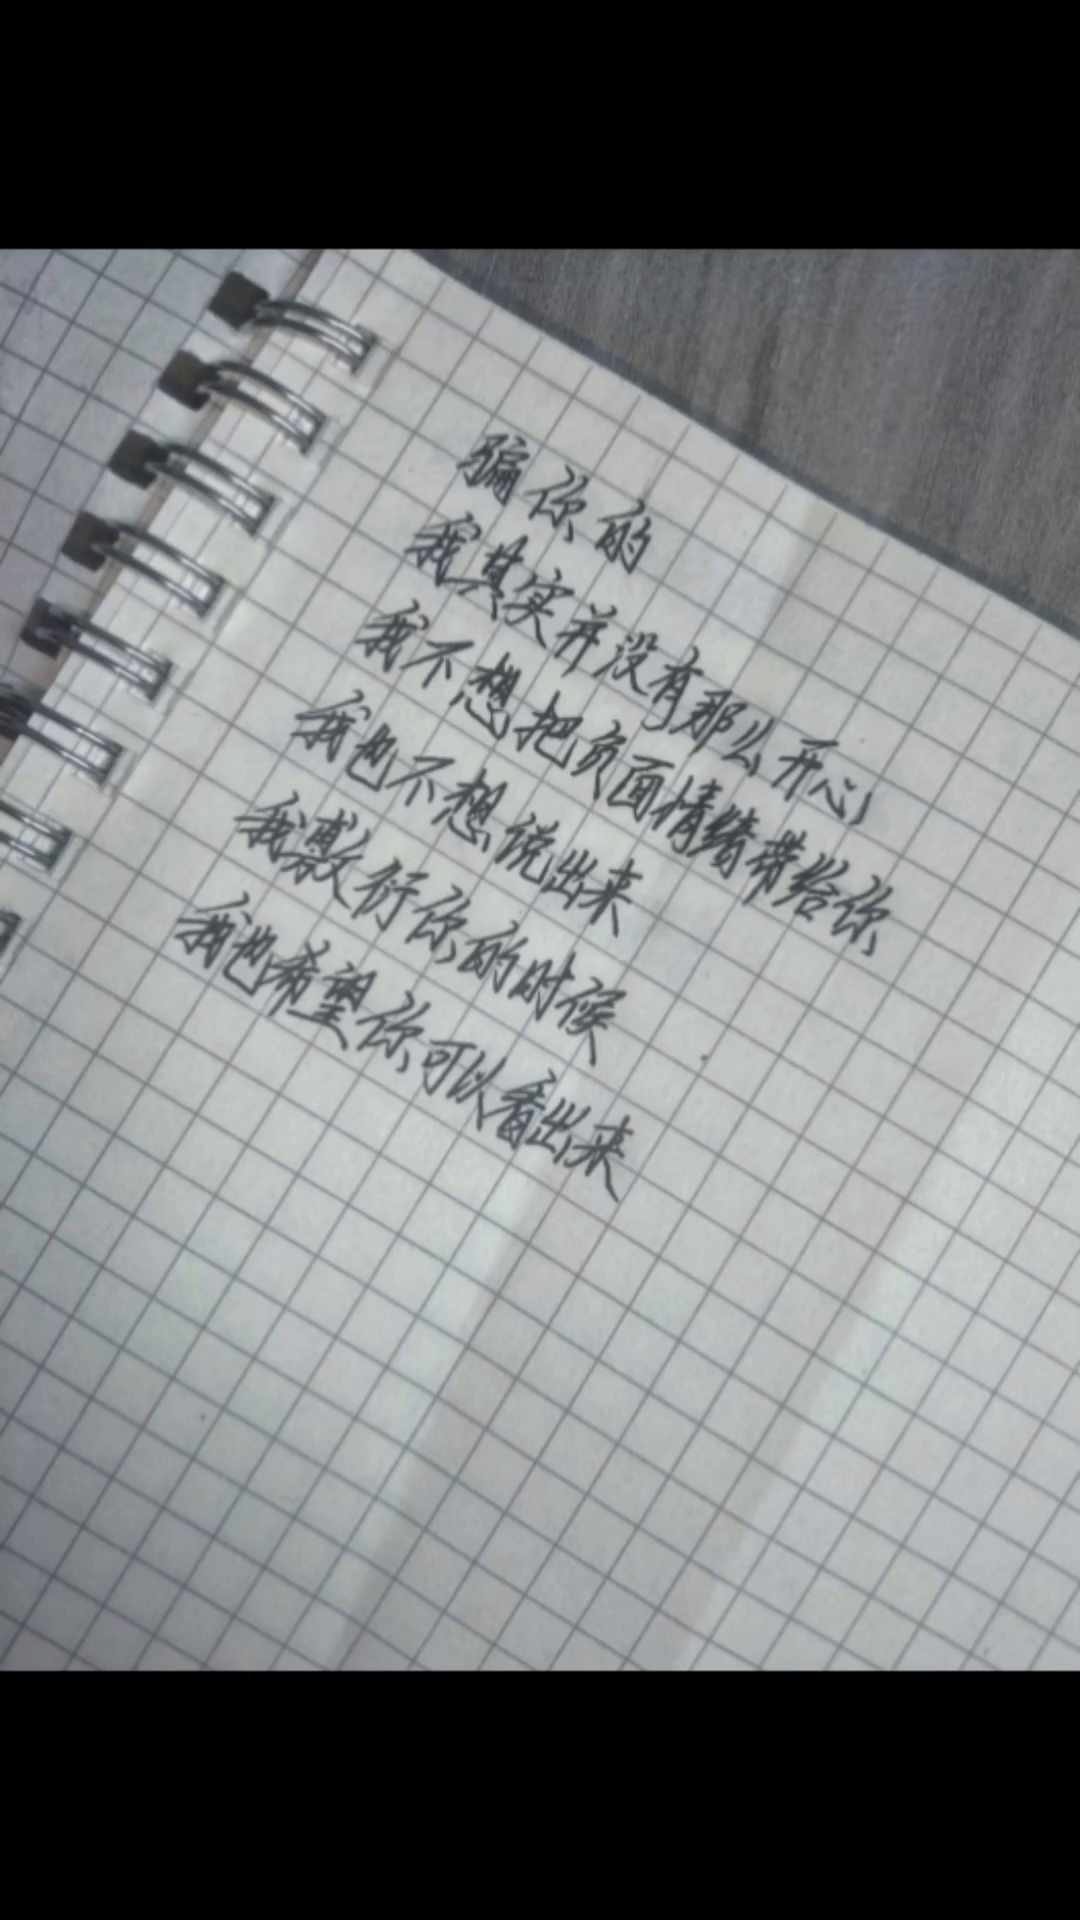 骗你的
我其实并没有那么开心
我不想把负面情绪带给你
我也不想说出来
我敷衍你的时候
我也希望你可以看出来